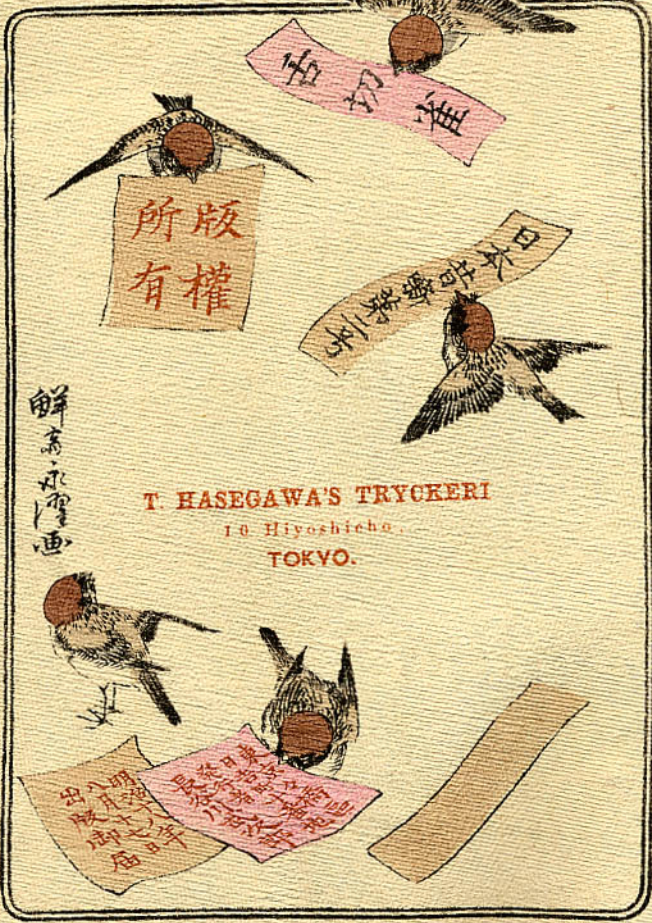 舌切雀
版權
所有
日本昔噺第二号
鮮齋永濯画
T. HASEGAWA'S TRYCKERI
10 Hiyoshicho,
TOKYO.
明治十八年
八月十七日
出版御届
長谷川武次郎